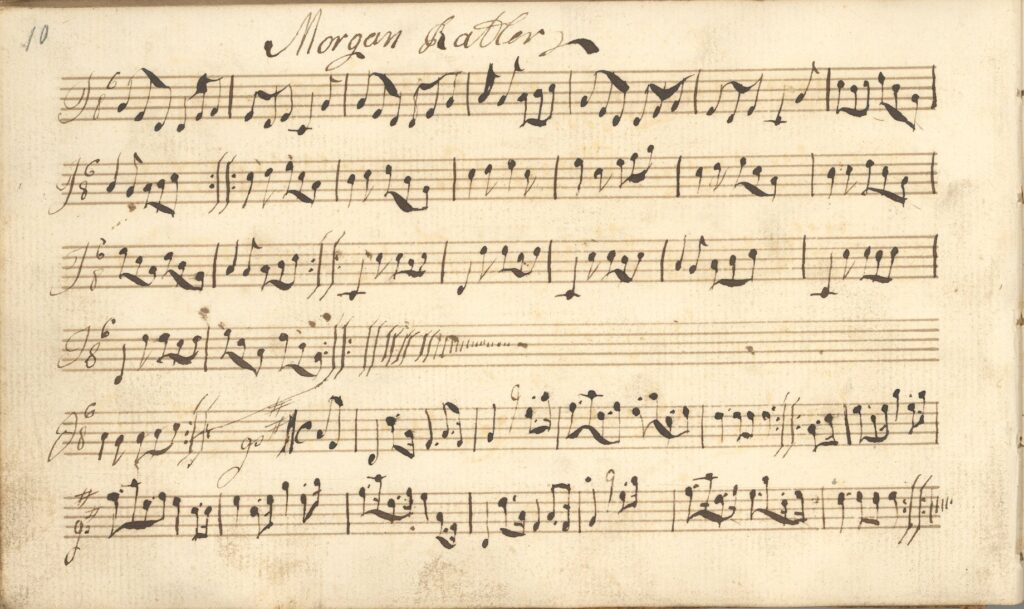 10
Morgan Ratler